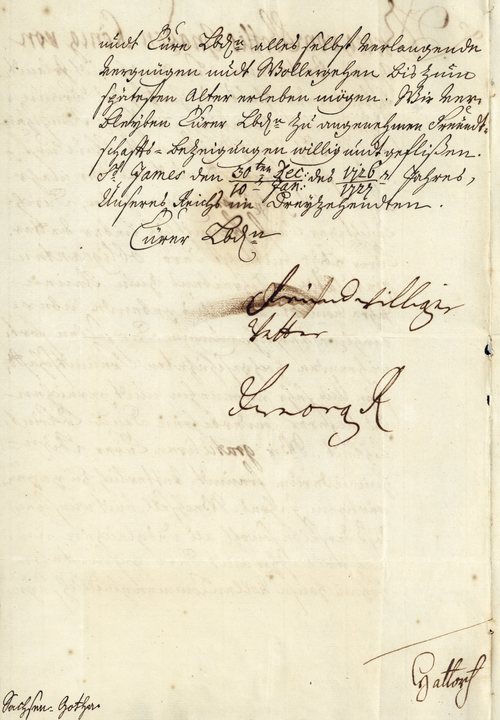 undt Eüre Lbdn alles selbst verlangende
vergnügen undt Wollergehen bis zum
spätesten Alter erleben mögen. Wir ver-
bleyben Eürer Lbdn zu angenehmen Freündt-
schaffts-bezeigungen willig undt geflißen.
St James den 30ten Dec: / 10 Jan: des 1726 / 1727 Jahres,
Unseres Reichs im Dreyzehendten.
Eürer Lbdn
Freundwilliger
Vetter
George R
Hattorf
Sachsen-Gotha.